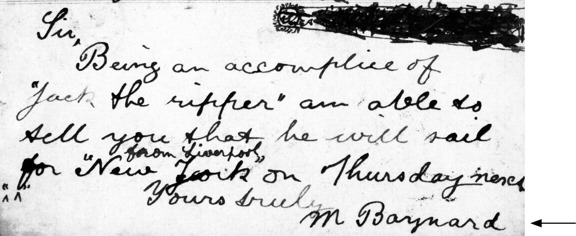 Sir,
Being an accomplice of
"Jack the ripper" am able to
tell you that he will sail
from Liverpool
for "New York" on Thursday next
Yours truly
M Baynard